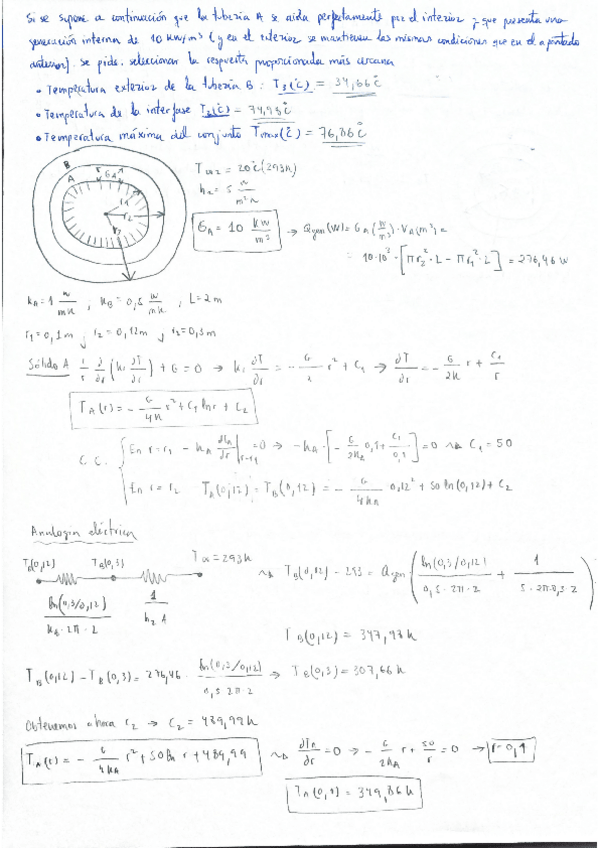 Si se supone a continuación que la tubería A se aísla perfectamente por el interior y que presenta una
generación interna de 10 kW/m³ (y en el exterior se mantienen las mismas condiciones que en el apartado
anterior). Se pide, seleccionar la respuesta proporcionada más cercana
• Temperatura exterior de la tubería B: T3(°C) = 34,66°C
• Temperatura de la interfase T2(°C) = 74,93°C
• Temperatura máxima del conjunto Tmax(°C) = 76,86°C
B
A
GA
r1
r2
T∞2 = 20°C (293K)
h2 = 5 W/m²K
GA = 10 kW/m³ → Qgen(W) = GA (W/m³) · VA(m³)
= 10·10³ · [πr2²·L - πr1²·L] = 276,46 W
kA = 1 W/mK ; kB = 0,5 W/mK ; L = 2m
r1 = 0,1m ; r2 = 0,12m ; r3 = 0,3m
Sólido A 1/r ∂/∂r (k r ∂T/∂r) + G = 0 → k r ∂T/∂r = - G/2 r² + C1 → ∂T/∂r = - G/2k r + C1/r
TA(r) = - G/4k r² + C1 ln r + C2
C.C. { En r = r1 - kA dTA/dr |r=r1 = 0 → -kA · [- G/2kA 0,1 + C1/0,1] = 0 → C1 = 50
En r = r2 TA(0,12) = TB(0,12) = - G/4kA 0,12² + 50 ln(0,12) + C2
Analogía eléctrica
TB(0,12) TB(0,3) T∞ = 293K → TB(0,12) - 293 = Qgen ( ln(0,3/0,12)/0,5·2π·2 + 1/5·2π·0,3·2 )
ln(0,3/0,12)/kB·2π·2 1/h2 A
TB(0,12) = 347,93K
TB(0,12) - TB(0,3) = 276,46 · ln(0,3/0,12)/0,5·2π·2 → TB(0,3) = 307,66K
Obtenemos ahora C2 → C2 = 489,99K
TA(r) = - G/4kA r² + 50 ln r + 489,99 → dTA/dr = 0 → - G/2kA r + 50/r = 0 → r = 0,1
TA(0,1) = 349,86K